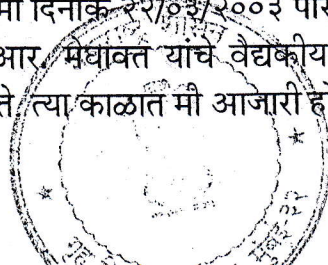 मी दिनांक २२/०३/२००३ पास
आर. मेघावत यांचे वैद्यकीय
ते त्या काळात मी आजारी ह
मुंबई-३२